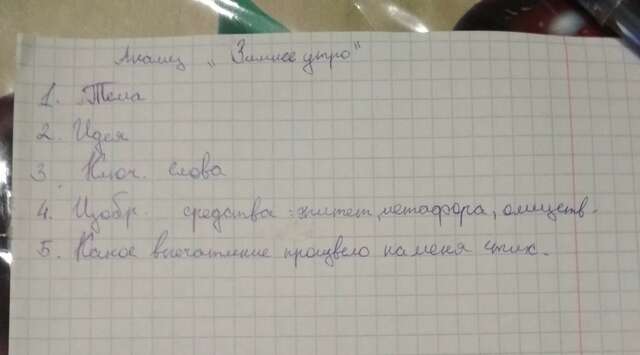 Анализ „Зимнее утро"
1. Тема
2. Идея
3. Ключ. слова
4. Изобр. средства: эпитет, метафора, олицетв.
5. Какое впечатление произвело на меня стих.